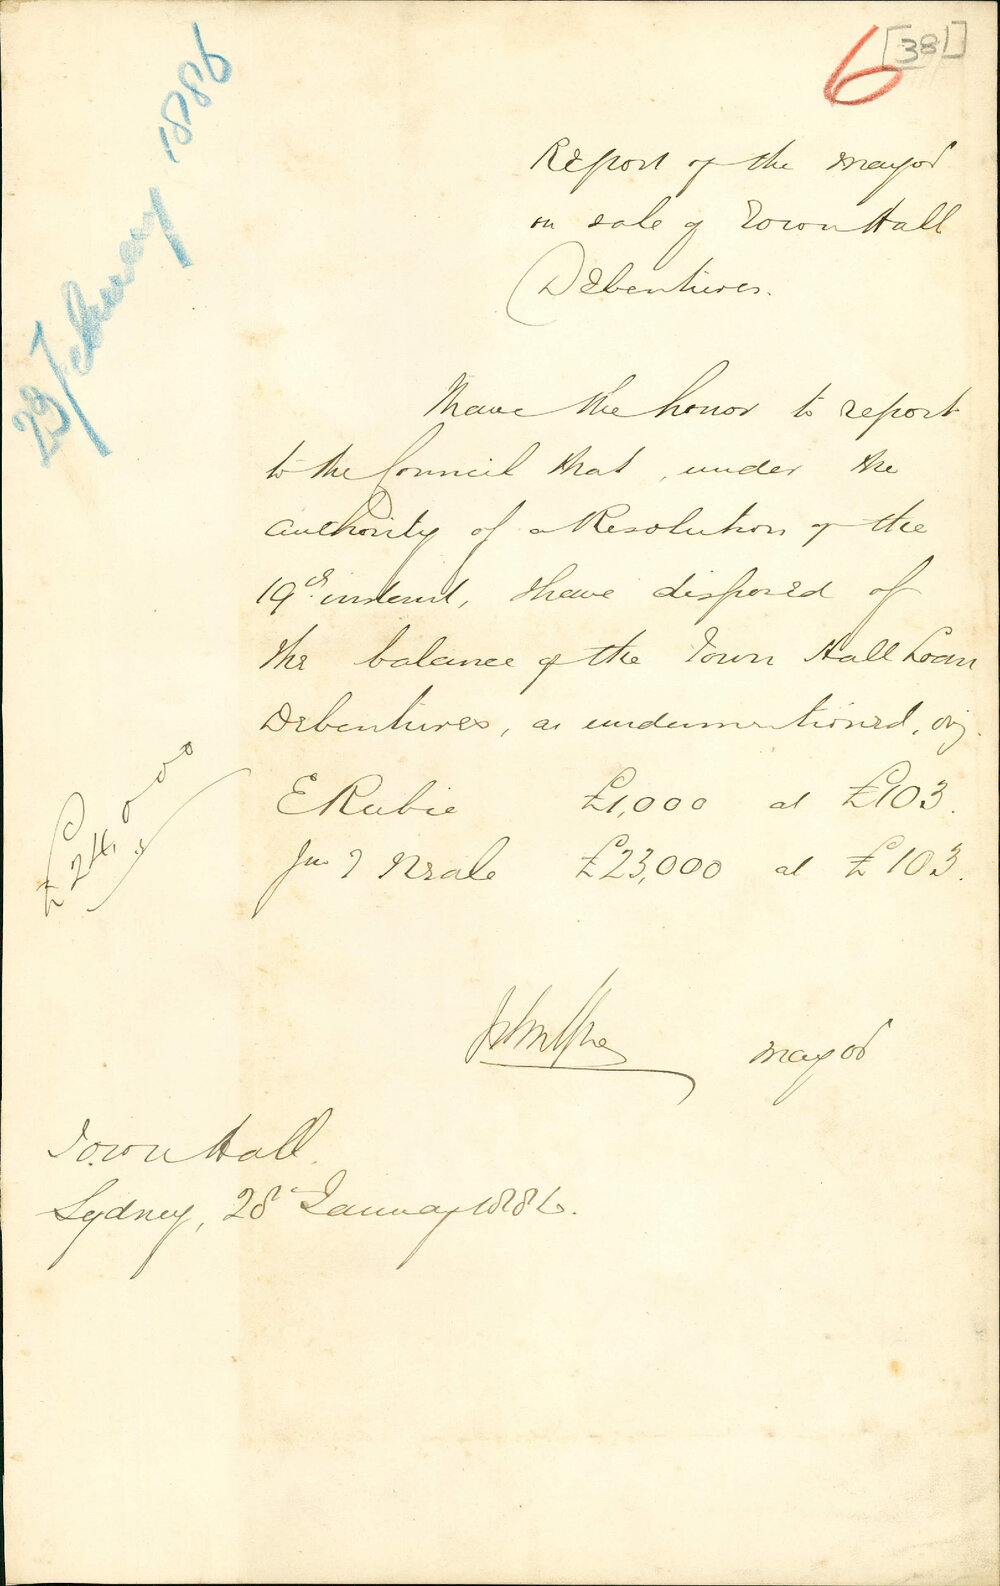 6 [38]
23 February 1886
Report of the Mayor
on sale of Town Hall
Debentures.
I have the honor to report
to the Council that, under the
authority of a Resolution of the
19th instant, I have disposed of
the balance of the Town Hall Loan
Debentures, as undermentioned, viz.
E Rubie £1,000 at £103.
Jno T Neale £23,000 at £103.
£24,000
Mayor
Town Hall.
Sydney, 28th January 1886.